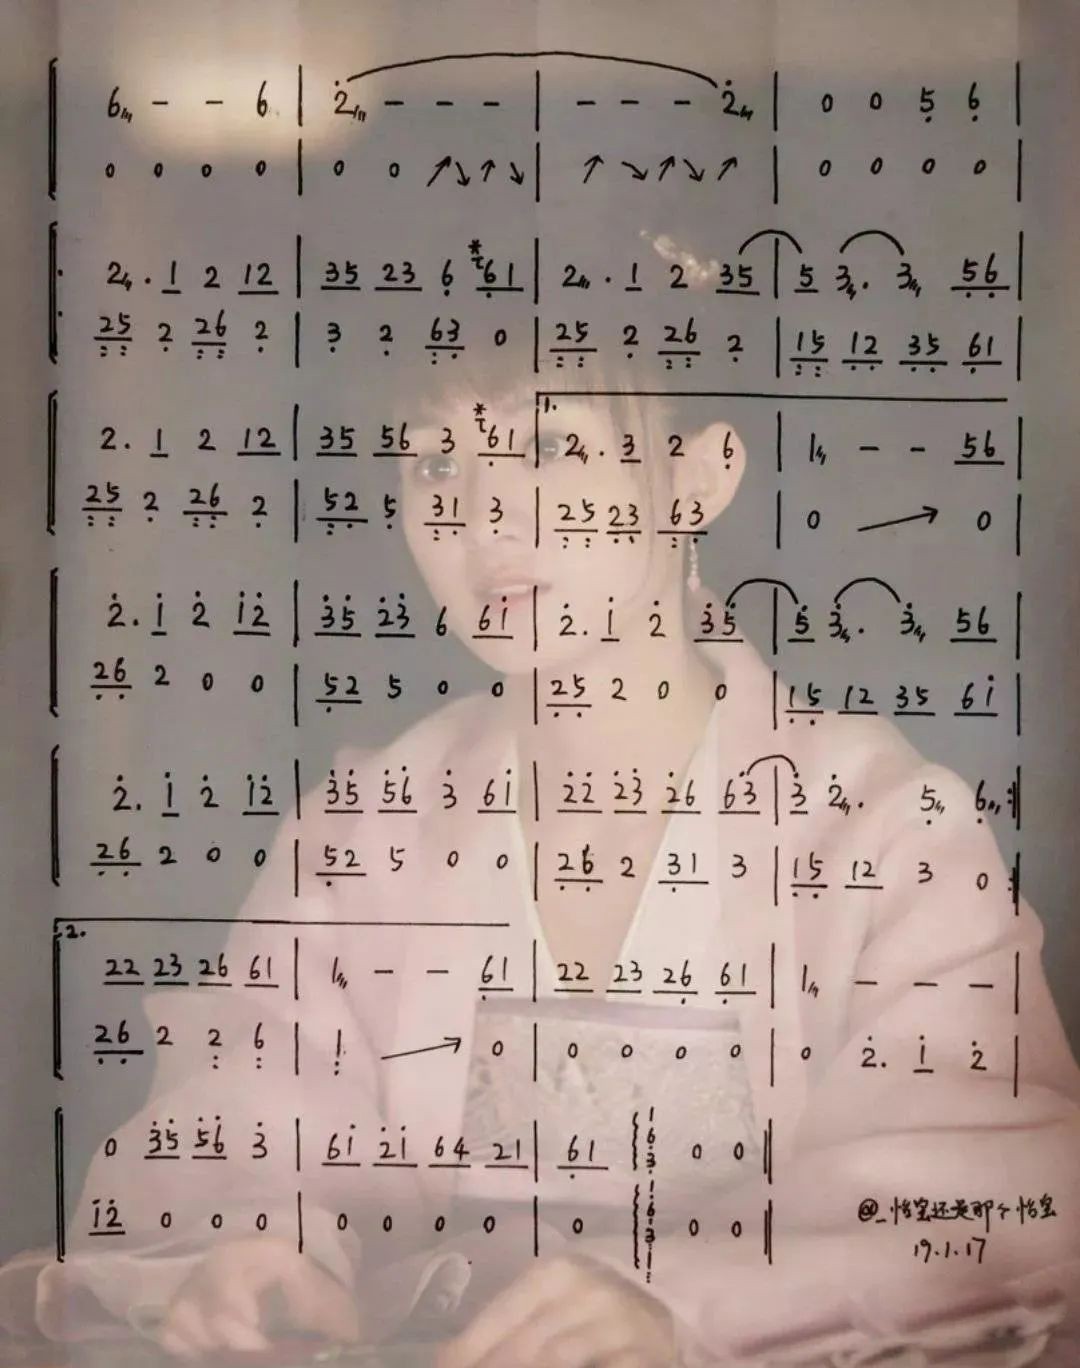 6 - - 6 | 2̇ - - - | - - - 2̇ | 0 0 5̣ 6̣ |
0 0 0 0 | 0 0 ↗↘↑↘ | ↗ ↘ ↗ ↘ ↗ | 0 0 0 0 |
2. 1 2 12 | 35 23 6̣ *τ6̣1 | 2. 1 2 35 | 5 3. 3 5̣6̣ |
25 2 26 2 | 3 2 63 0 | 25 2 26 2 | 15 12 35 61 |
2. 1 2 12 | 35 56 3 *τ6̣1 | 1. 2. 3 2 6̣ | 1 - - 56 |
25 2 26 2 | 52 5 31 3 | 25 23 63 | 0 ↗ 0 |
2̇. 1̇ 2̇ 1̇2̇ | 3̇5̇ 2̇3̇ 6 61̇ | 2̇. 1̇ 2̇ 3̇5̇ | 5̇ 3̇. 3̇ 56 |
26 2 0 0 | 52 5 0 0 | 25 2 0 0 | 15 12 35 61̇ |
2̇. 1̇ 2̇ 1̇2̇ | 3̇5̇ 5̇6̇ 3̇ 61̇ | 2̇2̇ 2̇3̇ 2̇6 63̇ | 3̇ 2̇. 5̣ 6̣ :|
26 2 0 0 | 52 5 0 0 | 26 2 31 3 | 15 12 3 0 :|
2. 22 23 26 61 | 1 - - 6̣1 | 22 23 26̣ 6̣1 | 1 - - - |
26 2 2 6 | 1 ↗ 0 | 0 0 0 0 | 0 2̇. 1̇ 2̇ |
0 3̇5̇ 5̇6̇ 3̇ | 61̇ 2̇1̇ 64 21 | 6̣1 1 6̣ 3̣ 0 0 ‖
1̇2̇ 0 0 0 | 0 0 0 0 | 0 1 6 3 1 0 0 ‖
@_怡宝还是那个怡宝
19.1.17